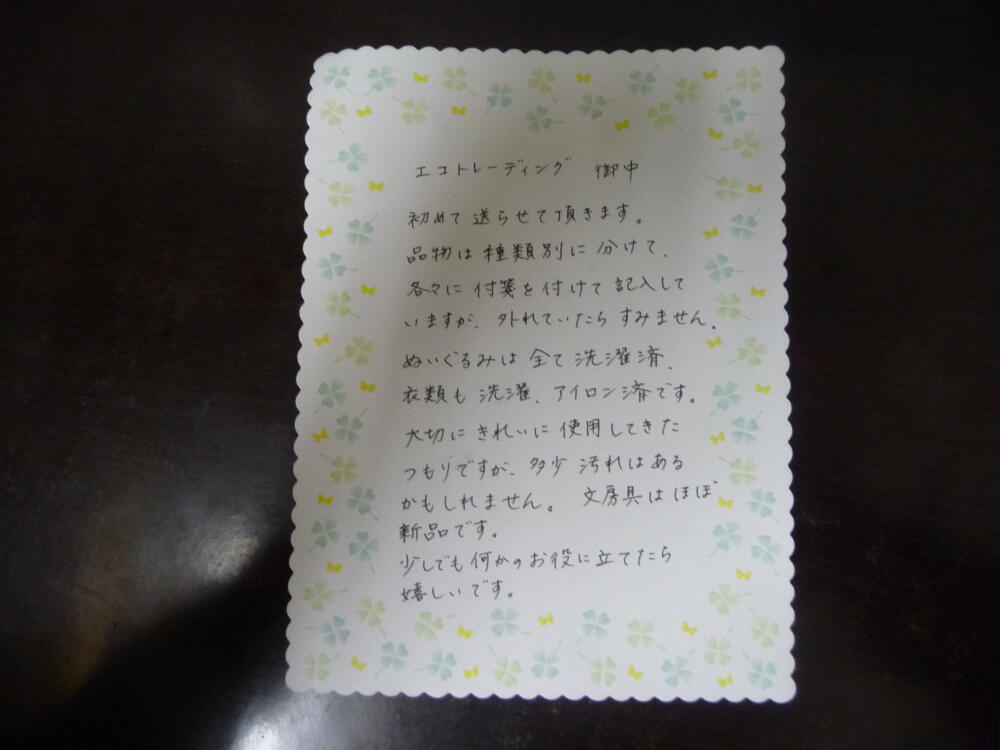 エコトレーディング 御中
初めて送らせて頂きます。
品物は種類別に分けて、
各々に付箋を付けて記入して
いますが、外れていたらすみません。
ぬいぐるみは全て洗濯済、
衣類も洗濯、アイロン済です。
大切にきれいに使用してきた
つもりですが、多少汚れはある
かもしれません。 文房具はほぼ
新品です。
少しでも何かのお役に立てたら
嬉しいです。